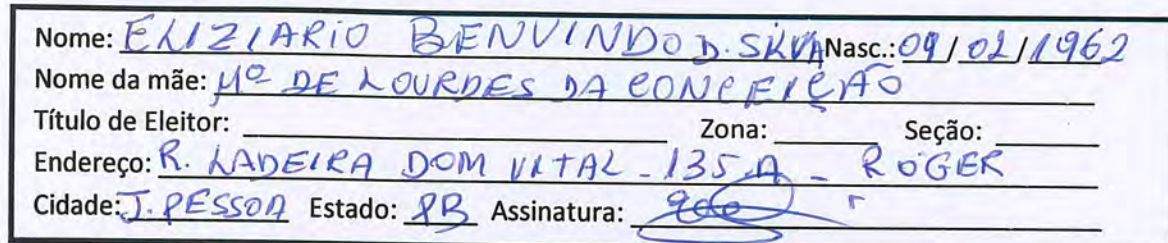 Nome: ELIZIARIO BENVINDO D. SILVA Nasc.: 09/02/1962
Nome da mãe: Mª DE LOURDES DA CONCEIÇÃO
Título de Eleitor: Zona: Seção:
Endereço: R. LADEIRA DOM VITAL - 135 A - ROGER
Cidade: J. PESSOA Estado: PB Assinatura: